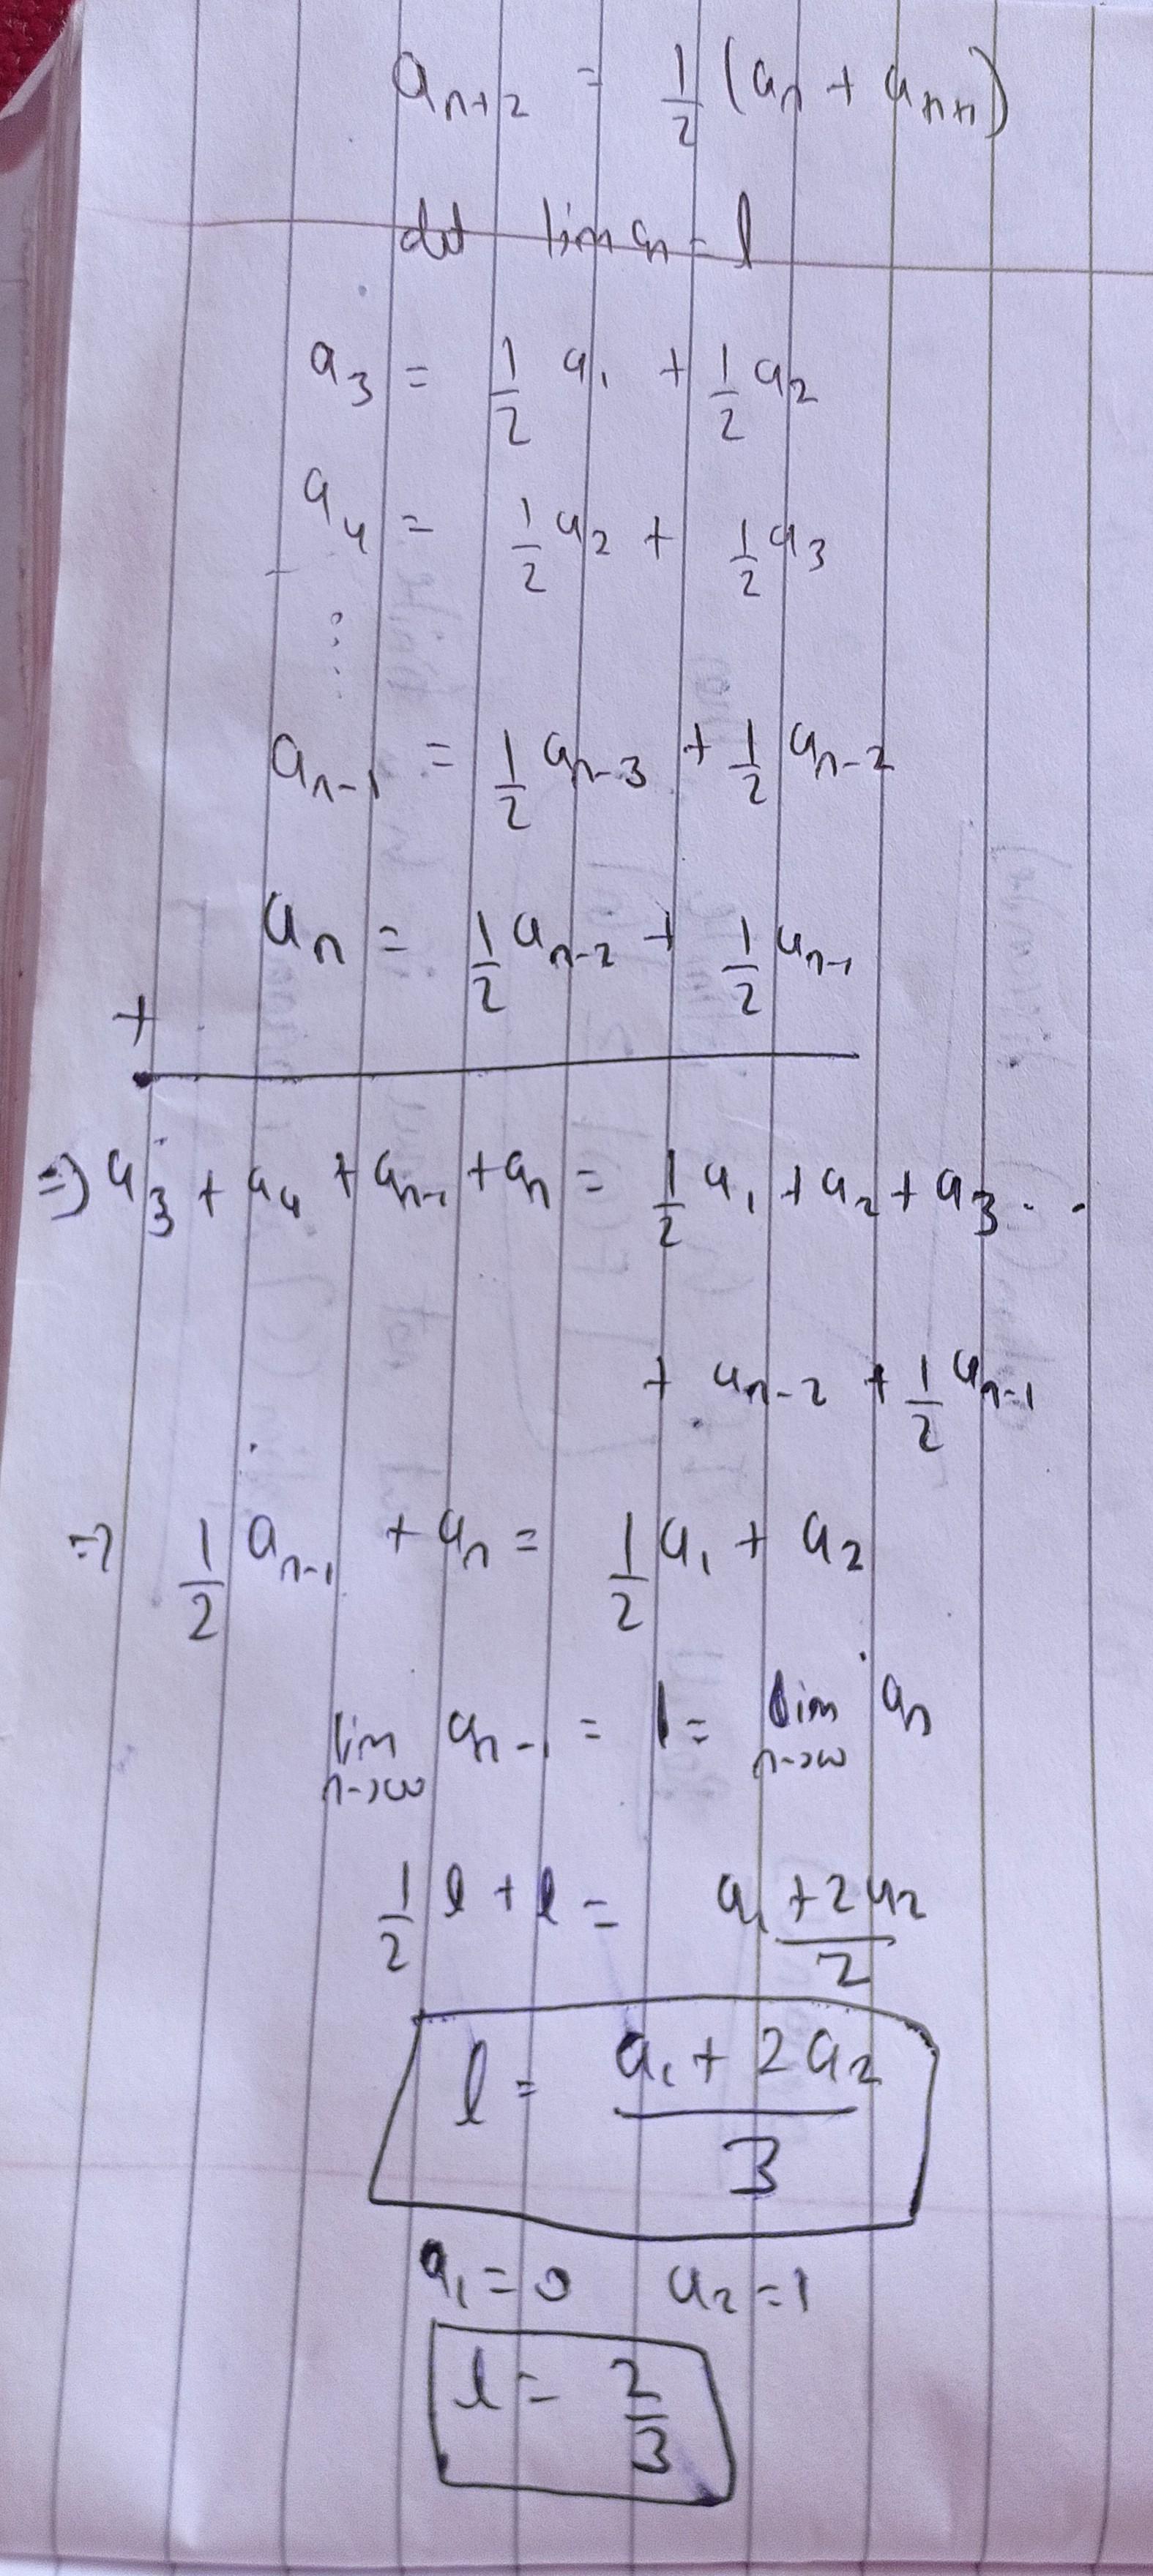 a_{n+2} = \frac{1}{2} (a_n + a_{n+1})
let lim a_n = l
a_3 = \frac{1}{2} a_1 + \frac{1}{2} a_2
a_4 = \frac{1}{2} a_2 + \frac{1}{2} a_3
⋮
a_{n-1} = \frac{1}{2} a_{n-3} + \frac{1}{2} a_{n-2}
a_n = \frac{1}{2} a_{n-2} + \frac{1}{2} a_{n-1}
+
=) a_3 + a_4 + a_{n-1} + a_n = \frac{1}{2} a_1 + a_2 + a_3 . .
+ a_{n-2} + \frac{1}{2} a_{n-1}
=) \frac{1}{2} a_{n-1} + a_n = \frac{1}{2} a_1 + a_2
\lim_{n→∞} a_{n-1} = l = \lim_{n→∞} a_n
\frac{1}{2} l + l = \frac{a_1 + 2a_2}{2}
l = \frac{a_1 + 2a_2}{3}
a_1 = 0 a_2 = 1
l = \frac{2}{3}